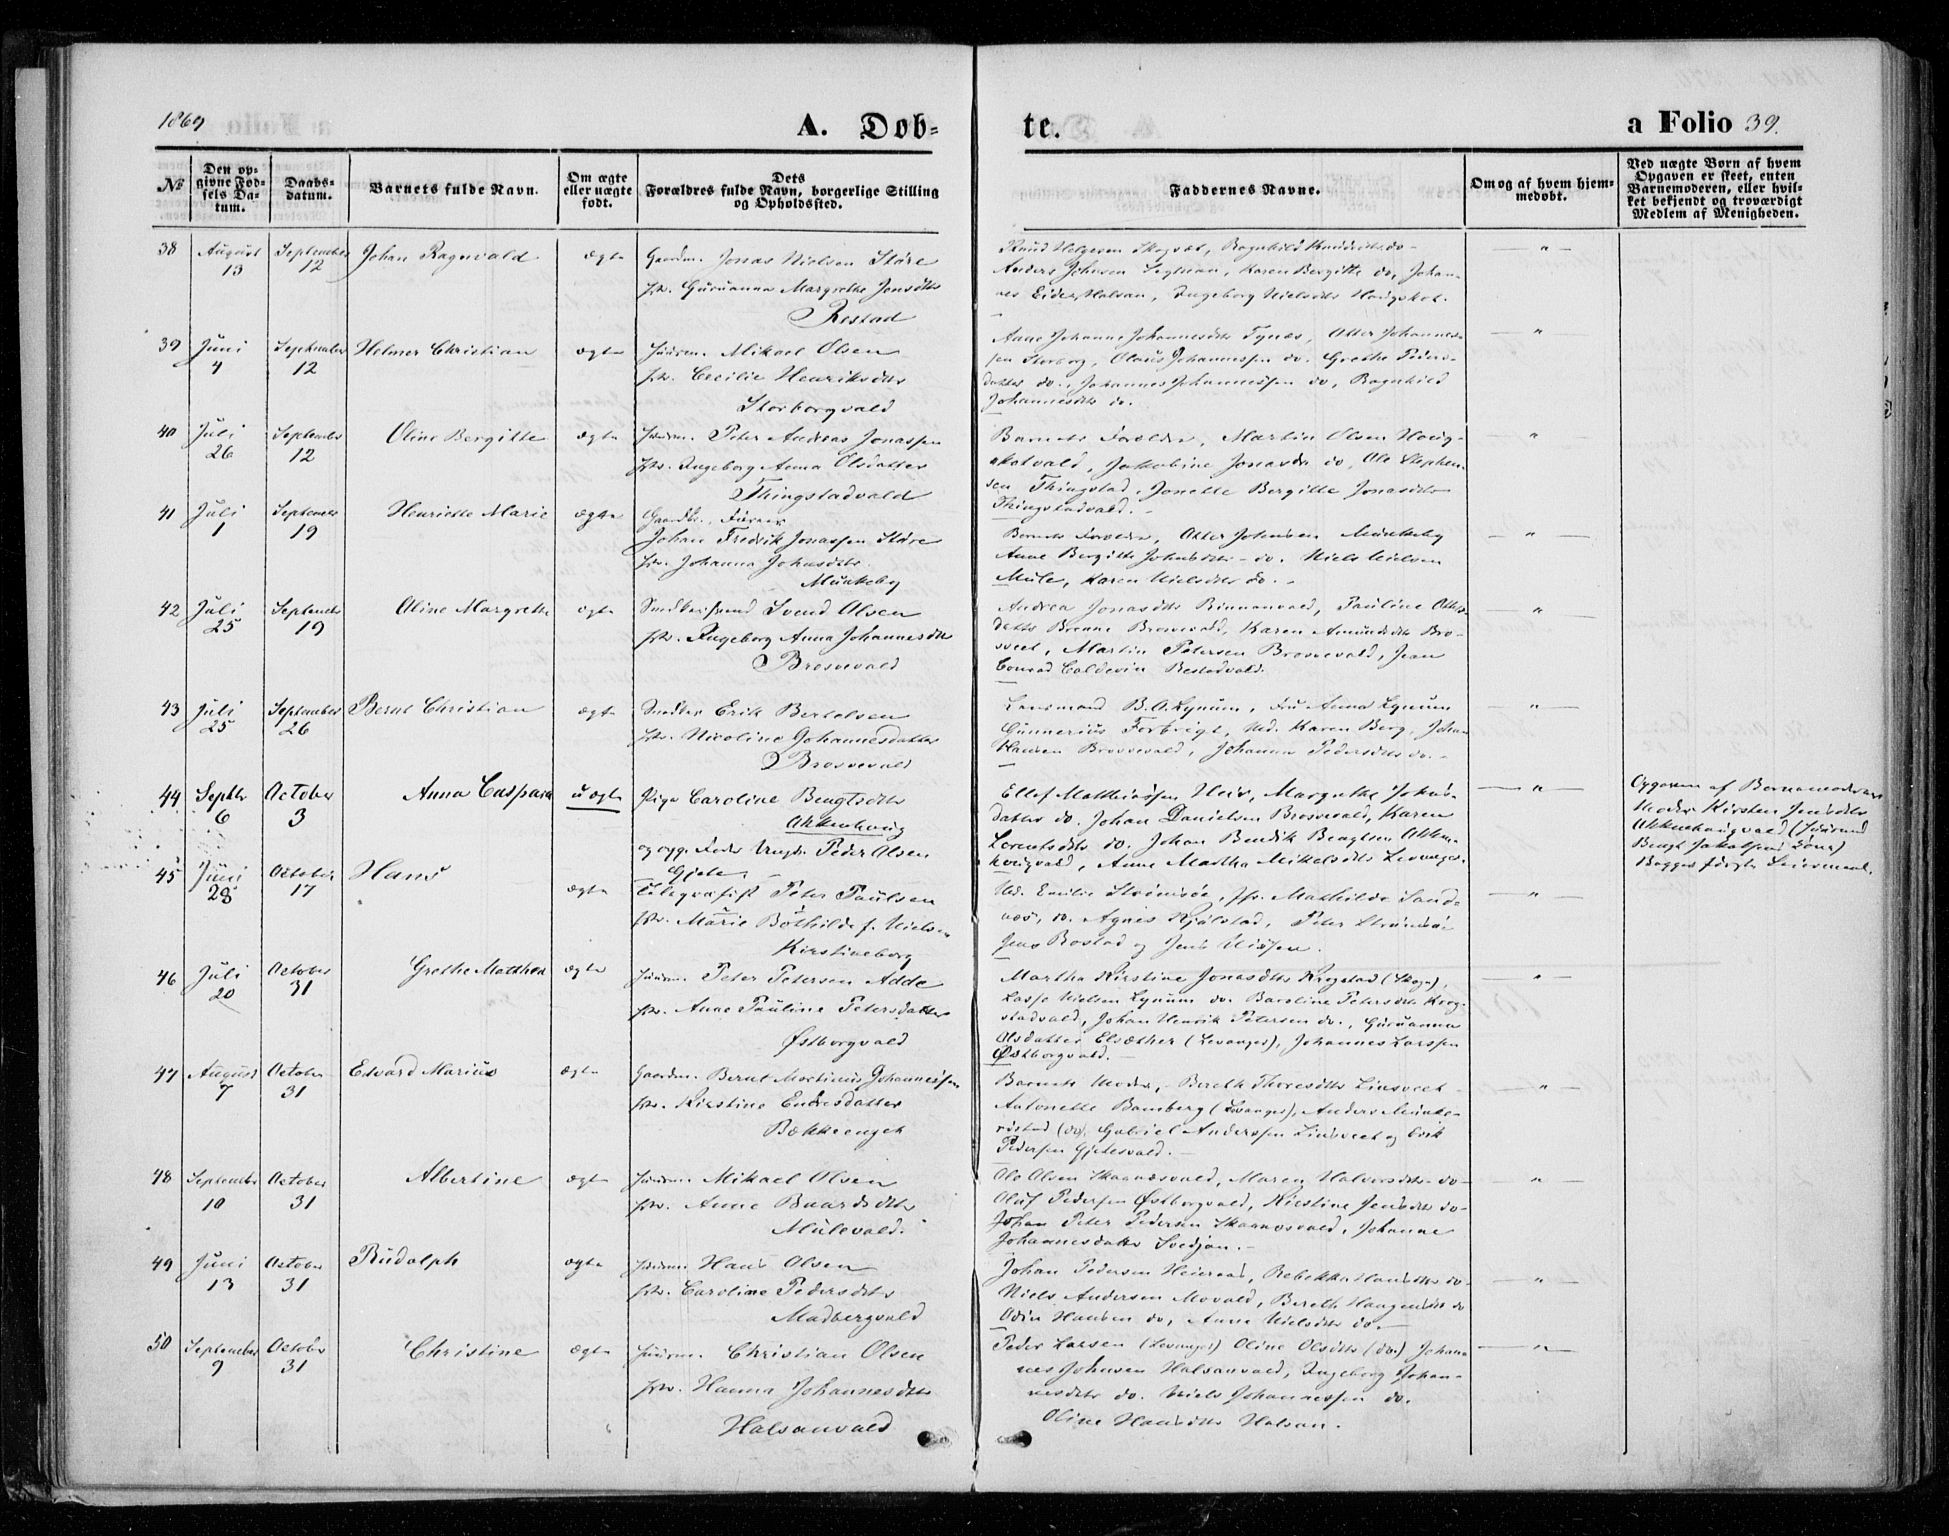 1869
A. Døb-
te.
a Folio 39.
№
Den op-
givne Fød-
sels Da-
tum.
Daabs-
datum.
Barnets fulde Navn.
Om ægte
eller uægte
født.
Dets
Forældres fulde Navn, borgerlige Stilling
og Opholdssted.
Faddernes Navne.
Om og af hvem hjem-
medøbt.
Ved uægte Børn af hvem
Opgaven er skeet, enten
Barnemoderen, eller hvil-
ket bekjendt og troværdigt
Medlem af Menigheden.
38 August 13 September 12 Johan Ragnvald ægte
Gaardm. Jonas Nielsen Støre
Guruanna Margrethe Jonsdtr
Restad
Knud Helgesen Skogset, Ragnhild Knudsdtr do -
Anders Johnsen Segtnan, Karen Bergitte do, Johan-
nes Eidex Halsan, Ingeborg Nielsdtr Hougskot.
39 Juni 4 September 12 Helmer Christian ægte
Huusm. Mikael Olsen
Cecilie Henriksdtr
Storborgvald
Anne Johanne Johannesdtr Tynes, Otter Johannes-
sen Storborg, Olaus Johannessen do. Grethe Peders-
datter do., Johannes Johannessen do, Ragnhild
Johannesdtr do.
40 Juli 26 September 12 Oline Bergitte ægte
Huusm. Peter Andreas Jonassen
Ingeborg Anna Olsdatter
Thingstadvald
Barnets Forældre, Martin Olsen Houg-
skotvald, Jakobine Jonasdr do, Ole Stephen-
sen Thingstad, Jonette Bergitte Jonasdtr
Thingstadvald. -
41 Juli 1 September 19 Henriette Marie ægte
Gaardbr., Furer
Johan Fredrik Jonassen Støre
Johanna Johnsdtr
Munkeby
Barnets Forældre, Otter Johnsen Munkeby
Anne Bergitte Johnsdtr - do. Niels Nielsen
Mule, Karen Nielsdtr do. -
42 Juli 25 September 19 Oline Margrethe ægte
Svend Olsen
Ingeborg Anna Johannesdtr
Brosvevald
Andrea Jonasdtr Binnanvald, Pauline Otters-
datter Brenne Brosvevald, Karen Amundsdtr Bro-
sveet, Martin Petersen Brosvevald, Jean
Conrad Coldevin Restadvald.
43 Juli 25 September 26 Bernt Christian ægte
Snedker Erik Bertelsen
Nicoline Johannesdatter
Brosvevald
Lensmand B. O. Lynum, Fru Anna Lynum
Gunnerius Forbregt, Md. Karen Berg, Johan
Hansen Brosvevald, Johanna Pedersdtr do. -
44 Septbr 6 October 3 Anna Caspara uægte
Pige Caroline Bengtsdtr
Akkerhoug
og opg. Fader Ungk. Peder Olsen
Gjete,
Ellef Matthiassen Heir, Margrethe Johns-
datter do. Johan Danielsen Brosvevald, Karen
Lorentsdtr do. Johan Bendik Bengtsen Akker-
hougvald, Anne Martha Mikkelsdtr Levanger.
Opgaven af Barnemoderens
Moder Kirsten Jensdtr
Akkerhaugvald (Huusmand
Bengt Jakobsens Kone)
Begges første Leiermaal.
45 Juni 28 October 17 Hans ægte
Telegrafist Peter Paulsen
Marie Bothilde f. Nielsen
Kirstineborg
Md. Emilie Strømsøe, Mathilde Sand-
næs, do. Agnes Hjelstad, Peter Strømsøe
Jens Bostad og Jens Nissen.
46 Juli 20 October 31 Grethe Matthea ægte
Huusm. Peter Petersen Adde
Anne Pauline Petersdatter
Østborgvald
Martha Kirstine Jonasdtr Krogstad (Skogn),
Lasse Nielsen Lynum do. Baroline Petersdtr Krog-
stadvald, Johan Henrik Petersen do., Guruanna
Olsdatter Elsæther (Levanger), Johannes Larssen
Østborgvald. -
47 August 7 October 31 Edvard Marius ægte
Gaardm. Bernt Martinus Johannessen
Kirstine Endresdatter
Bækkeengen
Barnets Moder, - Bereth Thoresdtr Linsveet -
Antonette Bamberg (Levanger), Anders Munke-
røstad (do). Gabriel Anderssen Linsveet og Erik
Pedersen Gjetesvald. -
48 September 10 October 31 Albertine ægte
Huusm. Mikael Olsen
Anne Baardsdtr
Mulevald.
Ole Olsen Skaanæsvald, Maren Halvorsdtr do -
Oluf Pedersen Østborgvald, Kirstine Jensdtr do -
Johan Peter Pedersen Skaanæsvald, Johanne
Johannesdatter Svedjan. -
49 Juni 13 October 31 Rudolph ægte
Huusm. Hans Olsen
Caroline Pedersdtr
Madbergvald
Johan Pedersen Heieraas, Rebekka Hansdtr do -
Niels Andersen Movald, Bereth Haagensdtr do
Odin Hansen do, Anne Nielsdtr do. -
50 September 9 October 31 Christine ægte
Huusm. Christian Olsen
Hanna Johannesdtr
Halsanvald
Peder Larsen (Levanger) Oline Olsdtr (do.) Johan-
nes Johnsen Halsanvald, Ingeborg Johan-
nesdtr do. Niels Johannessen do.
Oline Hansdtr Halsan.